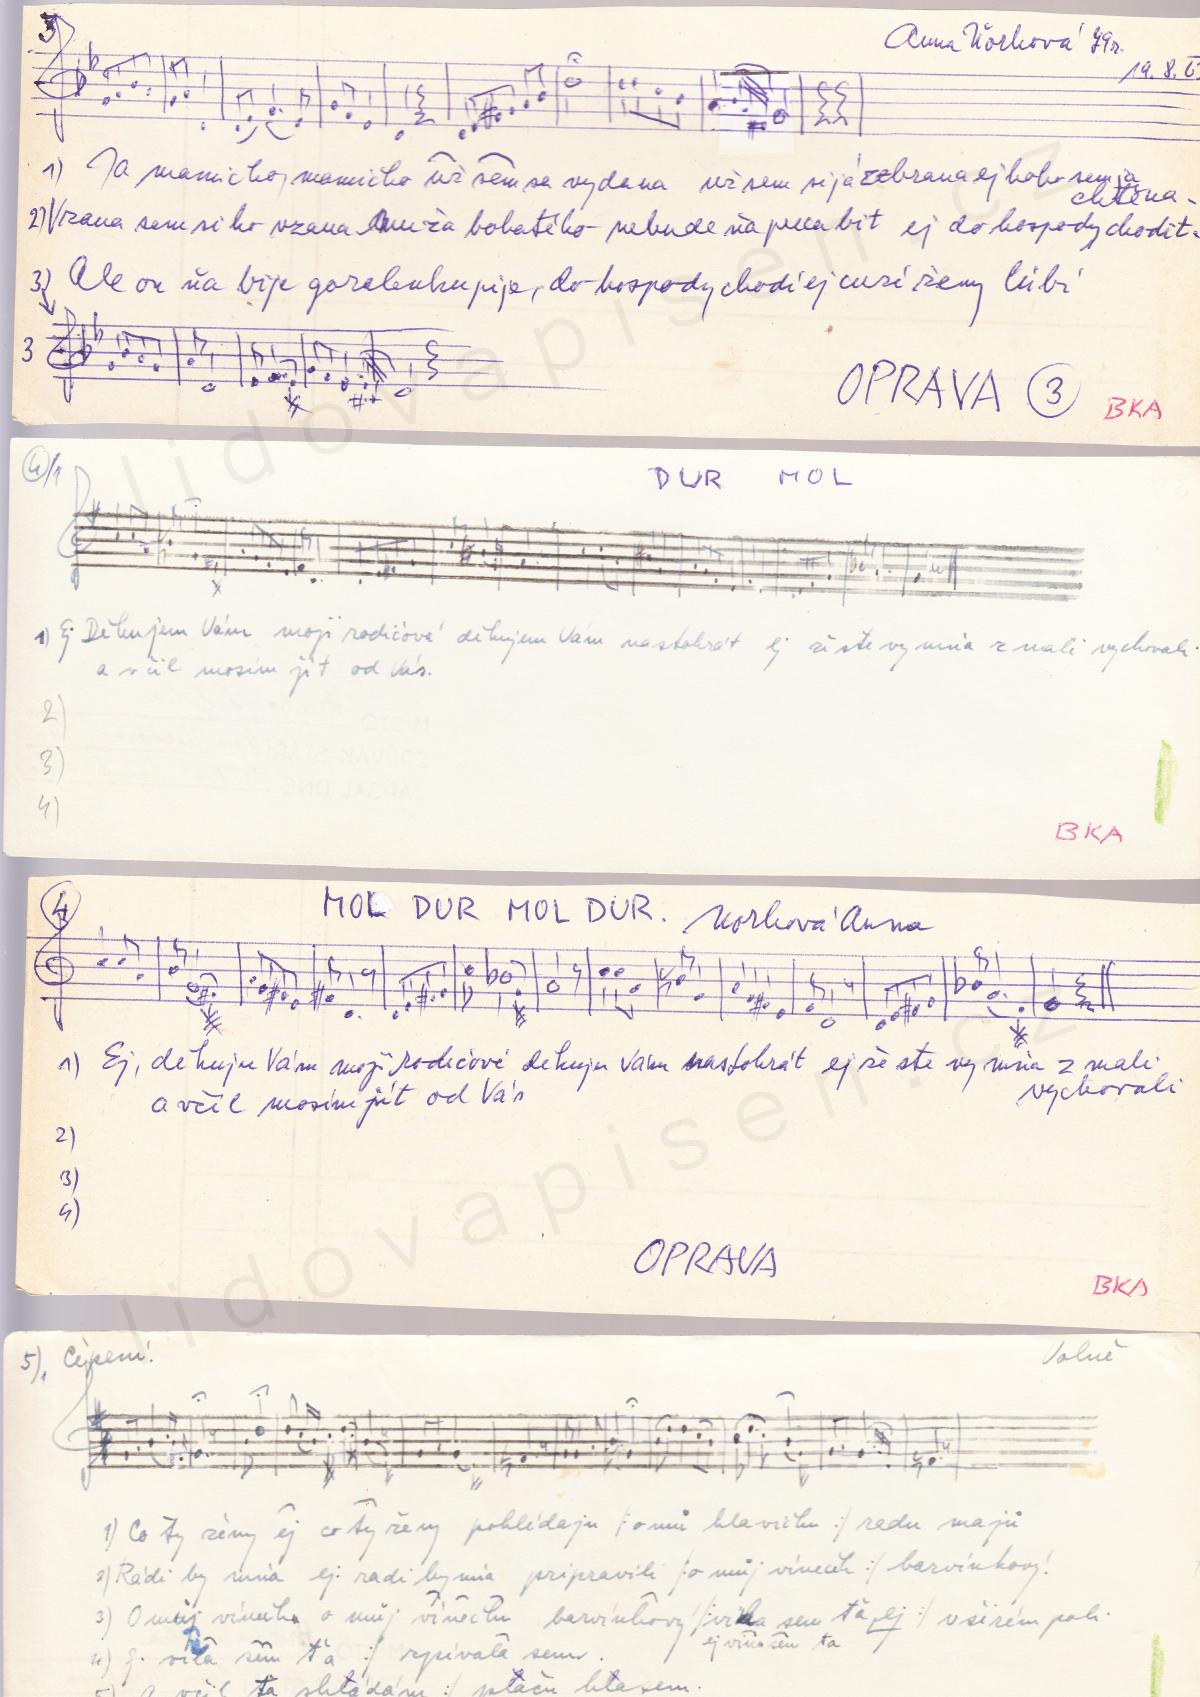 3
Anna Norková 79r.
19. 8.
1) Ja mamičko, mamičko už sem sa vydana už sem si já zebrana ej koho sem ja
chtěna -
2) Vzana sem si ho vzana muža bohatého nebude ňa preca bit ej do hospody chodit -
3) Ale on ňa bije goralenku pije, do hospody chodi ej cuzí ženy lúbí
3
OPRAVA 3
BKA
4/1
DUR MOL
1) Ej Děkujem Vám moji rodičové děkujem Vám nastokrát ej že ste vy mňa z mali vychovali
a včil mosím jít od Vás.
2)
3)
4)
MÍSTO
BKA
4
MOL DUR MOL DUR. Norková Anna
1) Ej, děkuju Vám moji rodičové děkuju vám nastokrát ej že ste vy mňa z mali
vychovali
a včil mosím jít od Vás
2)
3)
4)
OPRAVA
BKA
5), Čepení.
Volně
1) Co ty ženy ej co ty ženy pohlédajú /: o mú hlavičku :/ radu majú
2) Rádi by mňa ej radi by mňa pripravili /: o můj vínecek :/ barvínkový.
3) O můj vínecek o můj vínecek barvínkový /: víla sem ťa ej :/ v širém poli.
ej vila sem ťa
4) víla sem ťa :/ zpívala sem.
5) včil ťa skládám :/ pláču hlasem.
lidovapisen.cz
lidovapisen.cz